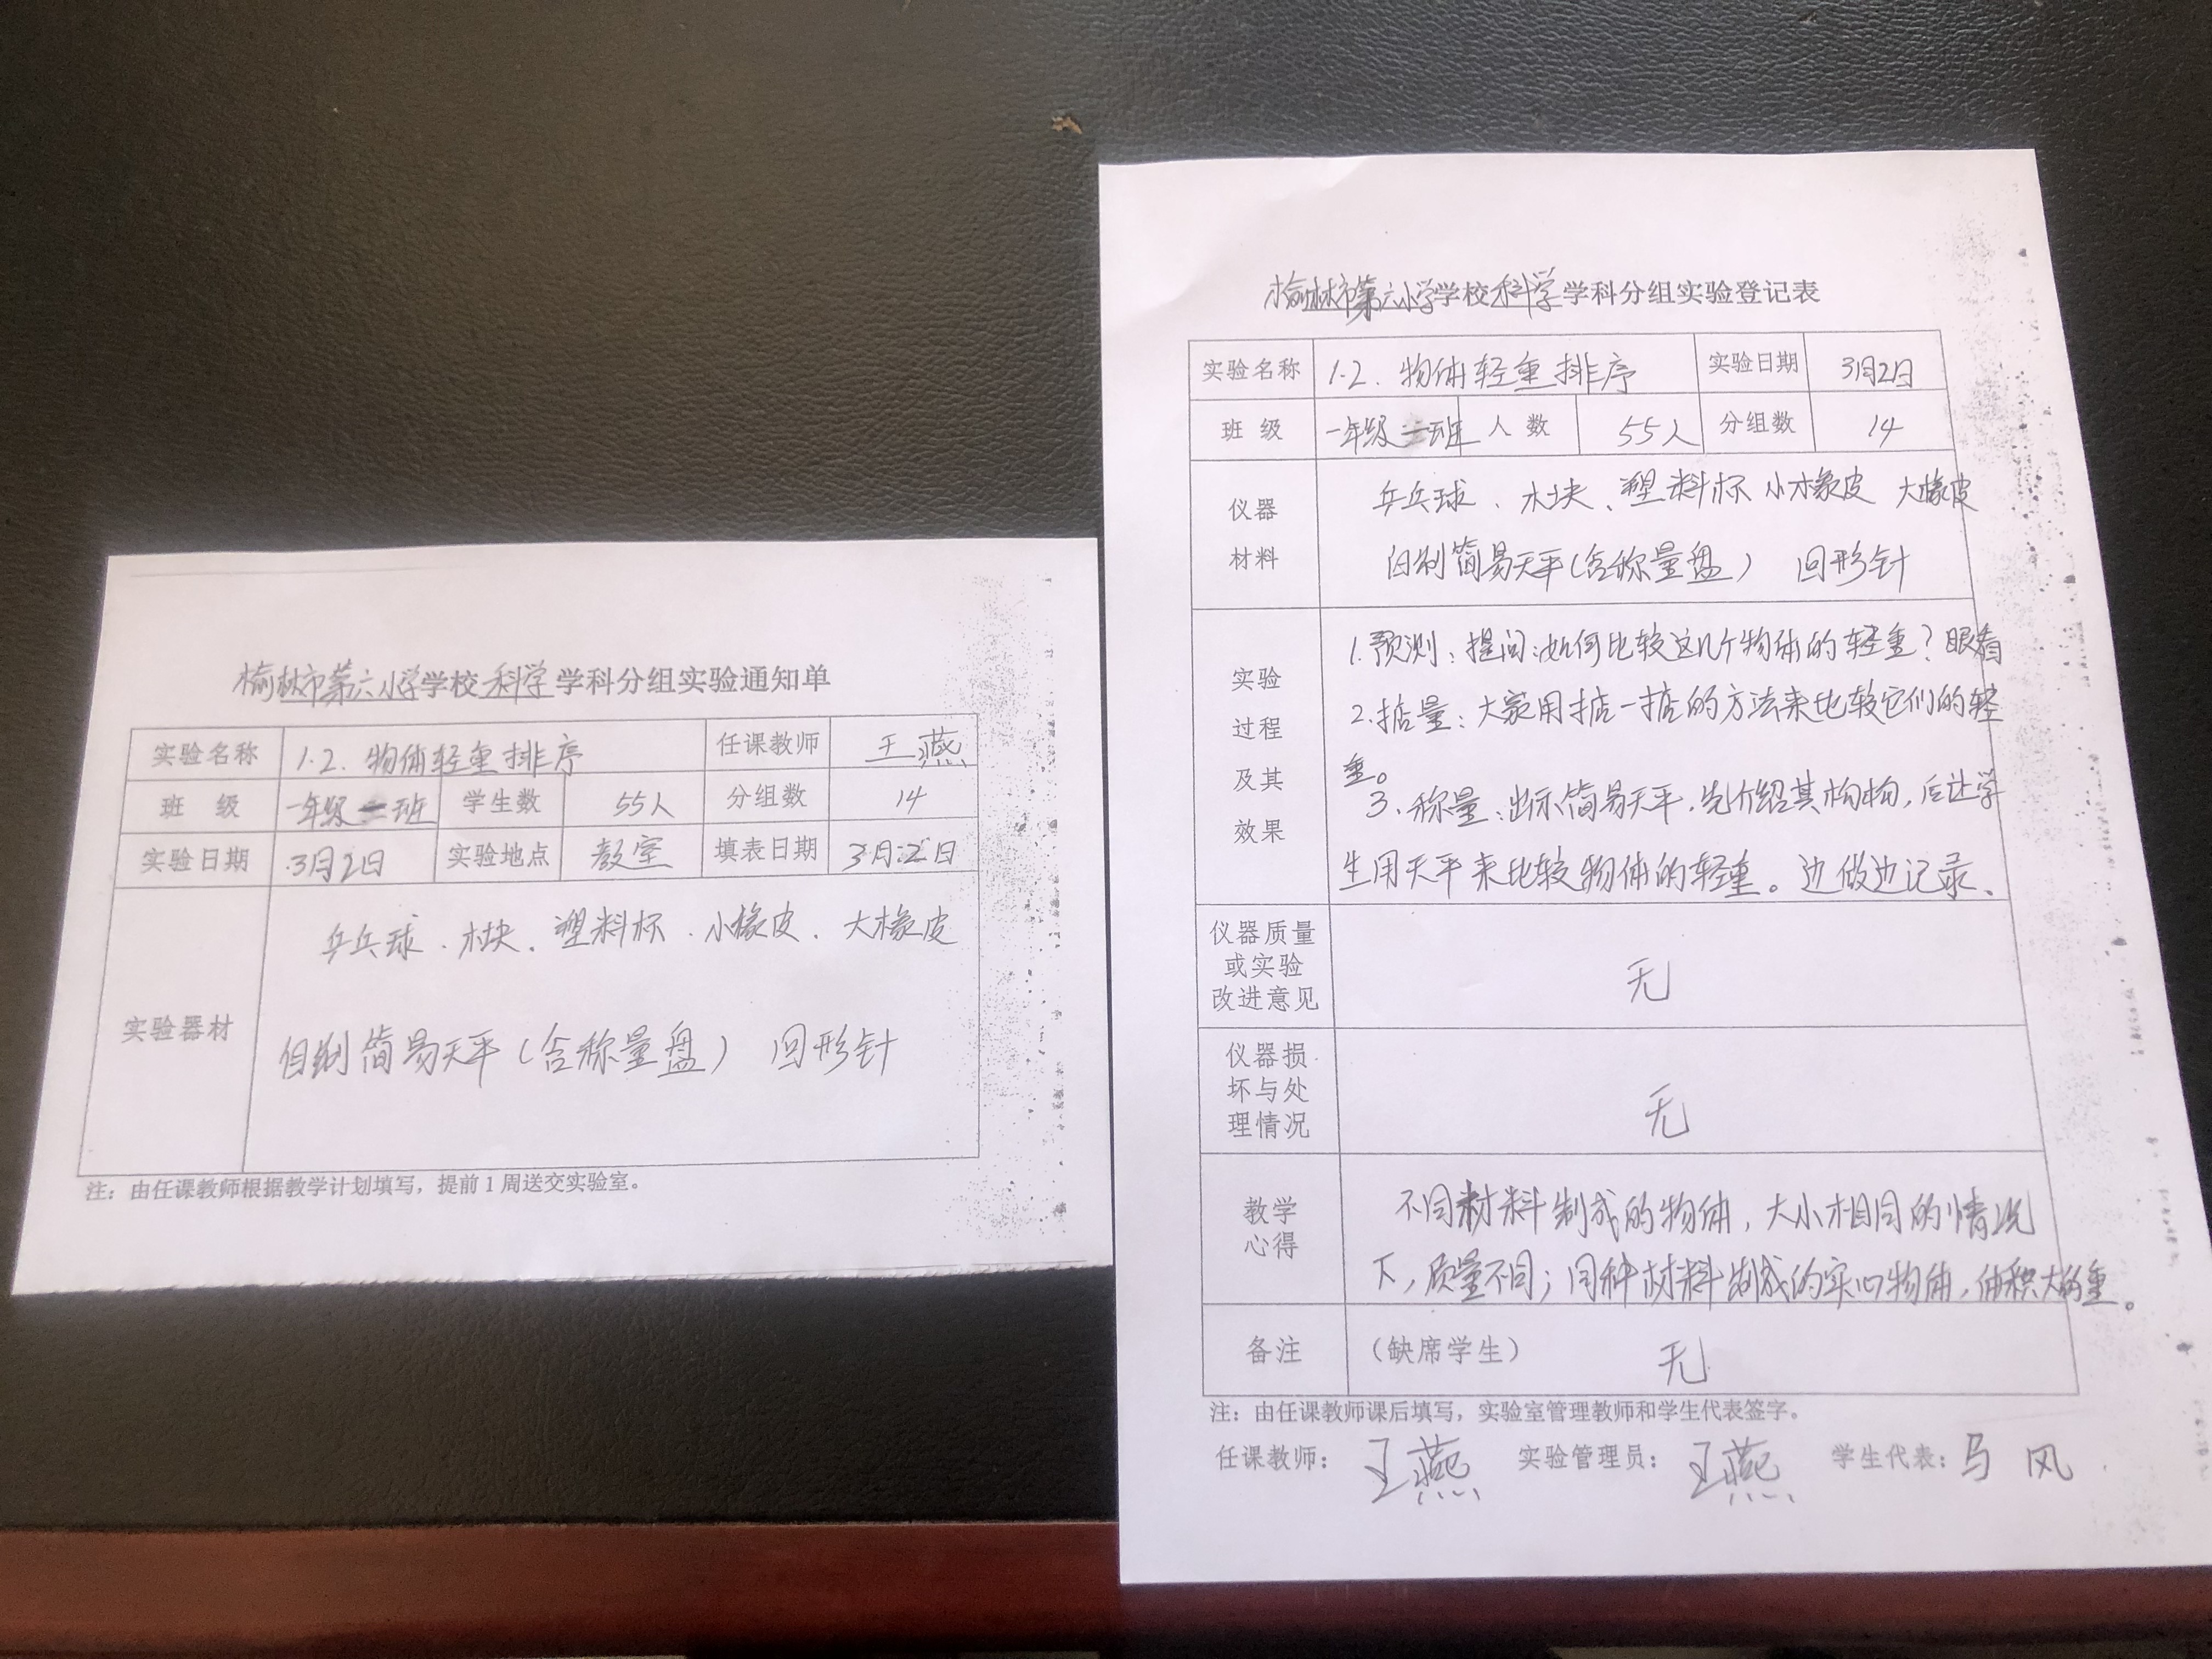 榆林市第六小学学校科学学科分组实验通知单
实验名称 1.2.物体轻重排序 任课教师 王燕
班 级 一年级一班 学生数 55人 分组数 14
实验日期 3月2日 实验地点 教室 填表日期 3月2日
实验器材
乒乓球、木块、塑料杯、小橡皮、大橡皮
自制简易天平(含称量盘) 回形针
注：由任课教师根据教学计划填写，提前1周送交实验室。
榆林市第六小学学校科学学科分组实验登记表
实验名称 1.2.物体轻重排序 实验日期 3月2日
班 级 一年级一班 人 数 55人 分组数 14
仪器
材料
乒乓球、木块、塑料杯 小橡皮 大橡皮
自制简易天平(含称量盘) 回形针
实验
过程
及其
效果
1.预测：提问：如何比较这几个物体的轻重？眼看
2.掂量：大家用掂一掂的方法来比较它们的轻
重。
3.称量：出示简易天平，先介绍其构构，后让学
生用天平来比较物体的轻重。边做边记录、
仪器质量
或实验
改进意见
无
仪器损
坏与处
理情况
无
教学
心得
不同材料制成的物体，大小相同的情况
下，质量不同；同种材料制成的实心物体，体积大的重。
备注 （缺席学生） 无
注：由任课教师课后填写，实验室管理教师和学生代表签字。
任课教师： 王燕 实验管理员： 王燕 学生代表：马 风